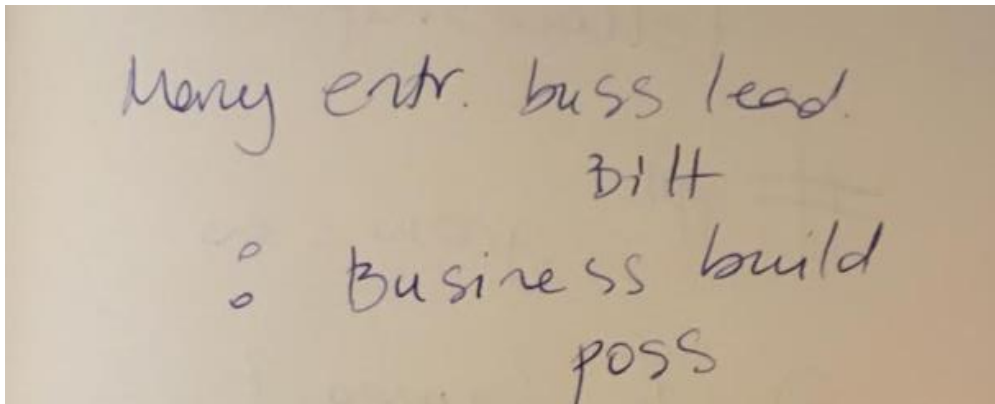 Many entr. buss lead.
Bilt
: Business build
poss